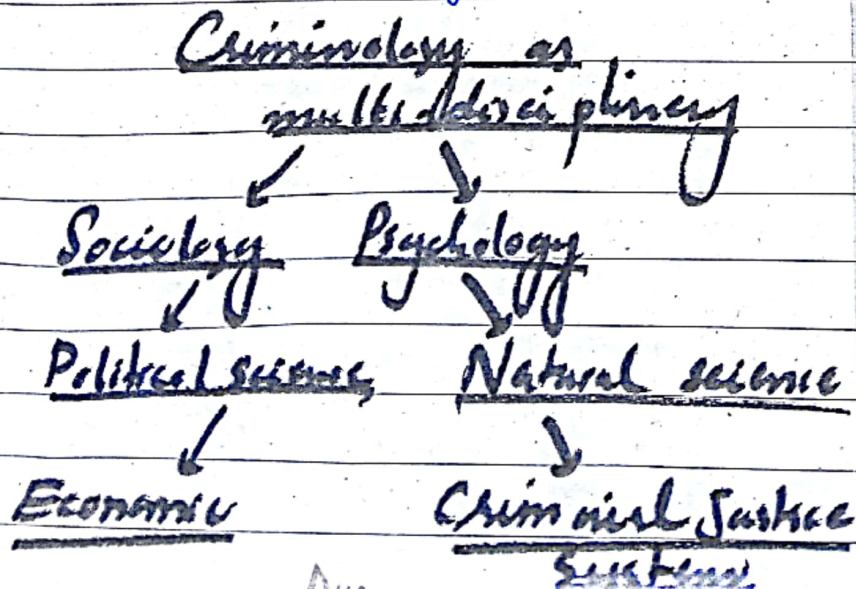 Criminology as
multi disciplinery
Sociology Psychology
Political science, Natural science
Economic Criminal Justice
System